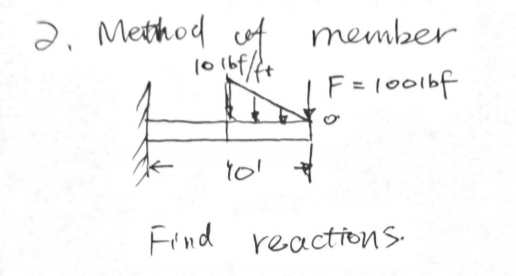 2. Method of member
10 lbf/ft
F = 100lbf
0
10'
Find reactions.